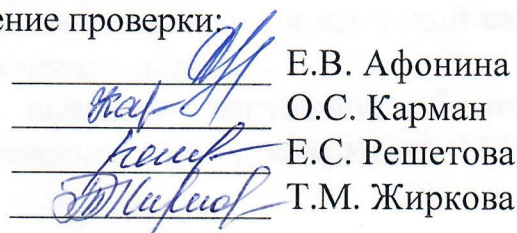 ение проверки:
Е.В. Афонина
О.С. Карман
Е.С. Решетова
Т.М. Жиркова